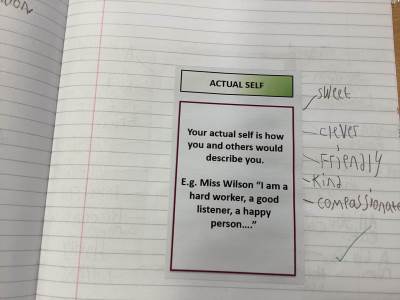 ACTUAL SELF
Your actual self is how
you and others would
describe you.
E.g. Miss Wilson “I am a
hard worker, a good
listener, a happy
person....”
sweet
- clever
- Friendly
- Kind
- compassionate